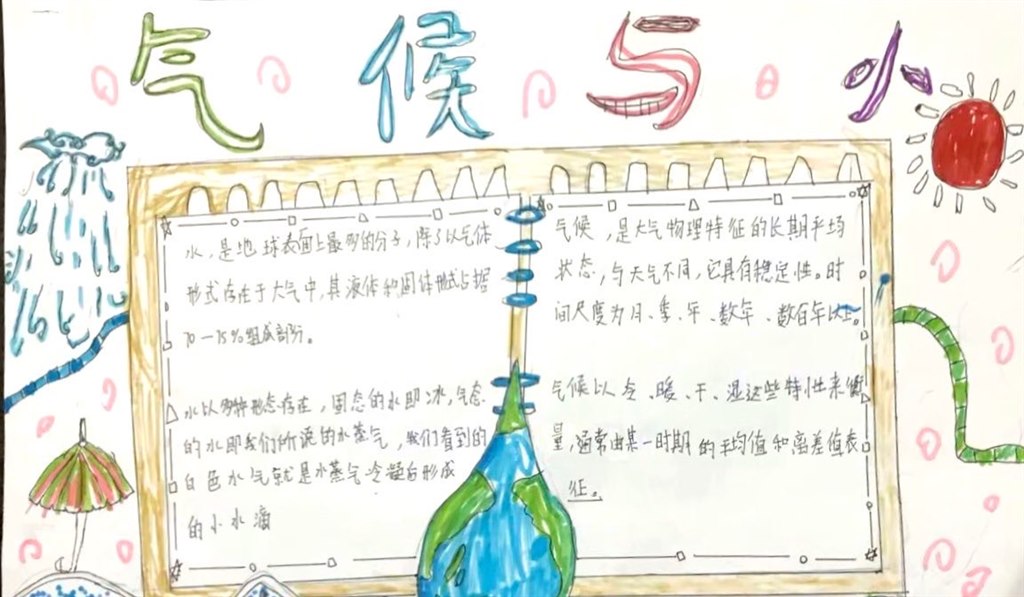 气候与水
水,是地球表面上最多的分子,除了以气体
形式存在于大气中,其液体和固体形式占据
70—75%组成部分。
水以多种形态存在,固态的水即冰,气态
的水即我们所说的水蒸气,我们看到的
白色水气就是水蒸气冷凝后形成
的小水滴
气候,是大气物理特征的长期平均
状态,与天气不同,它具有稳定性。时
间尺度为月、季、年、数年、数百年以上。
气候以冷、暖、干、湿这些特性来衡
量,通常由某一时期的平均值和离差值表
征。